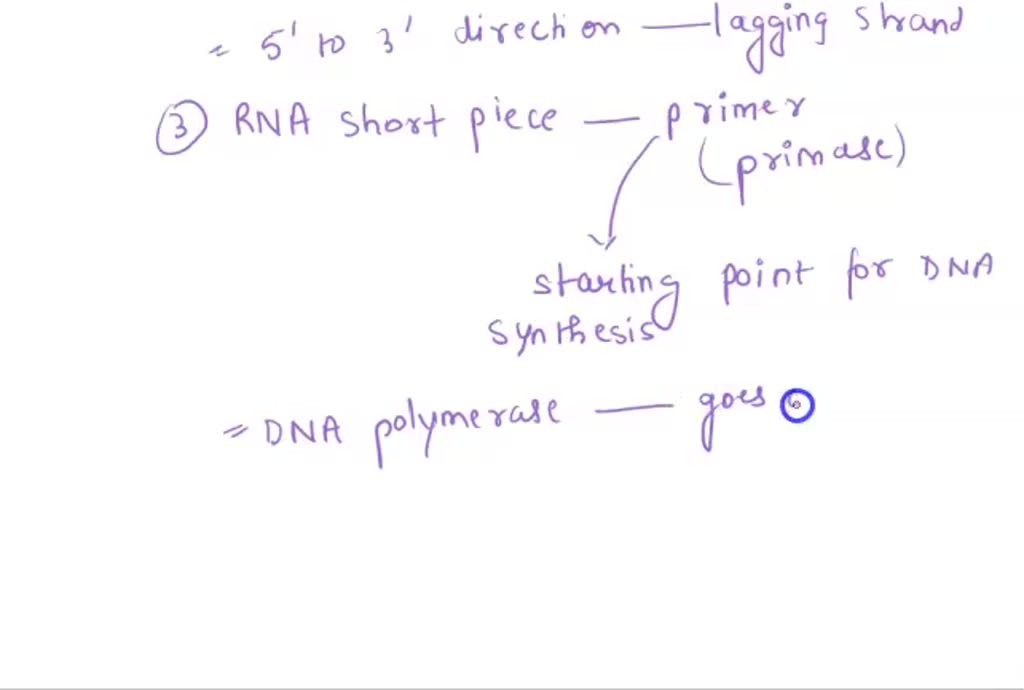 = 5' to 3' direction — lagging strand
③ RNA short piece — primer
(primase)
starting point for DNA
synthesis
= DNA polymerase — goes